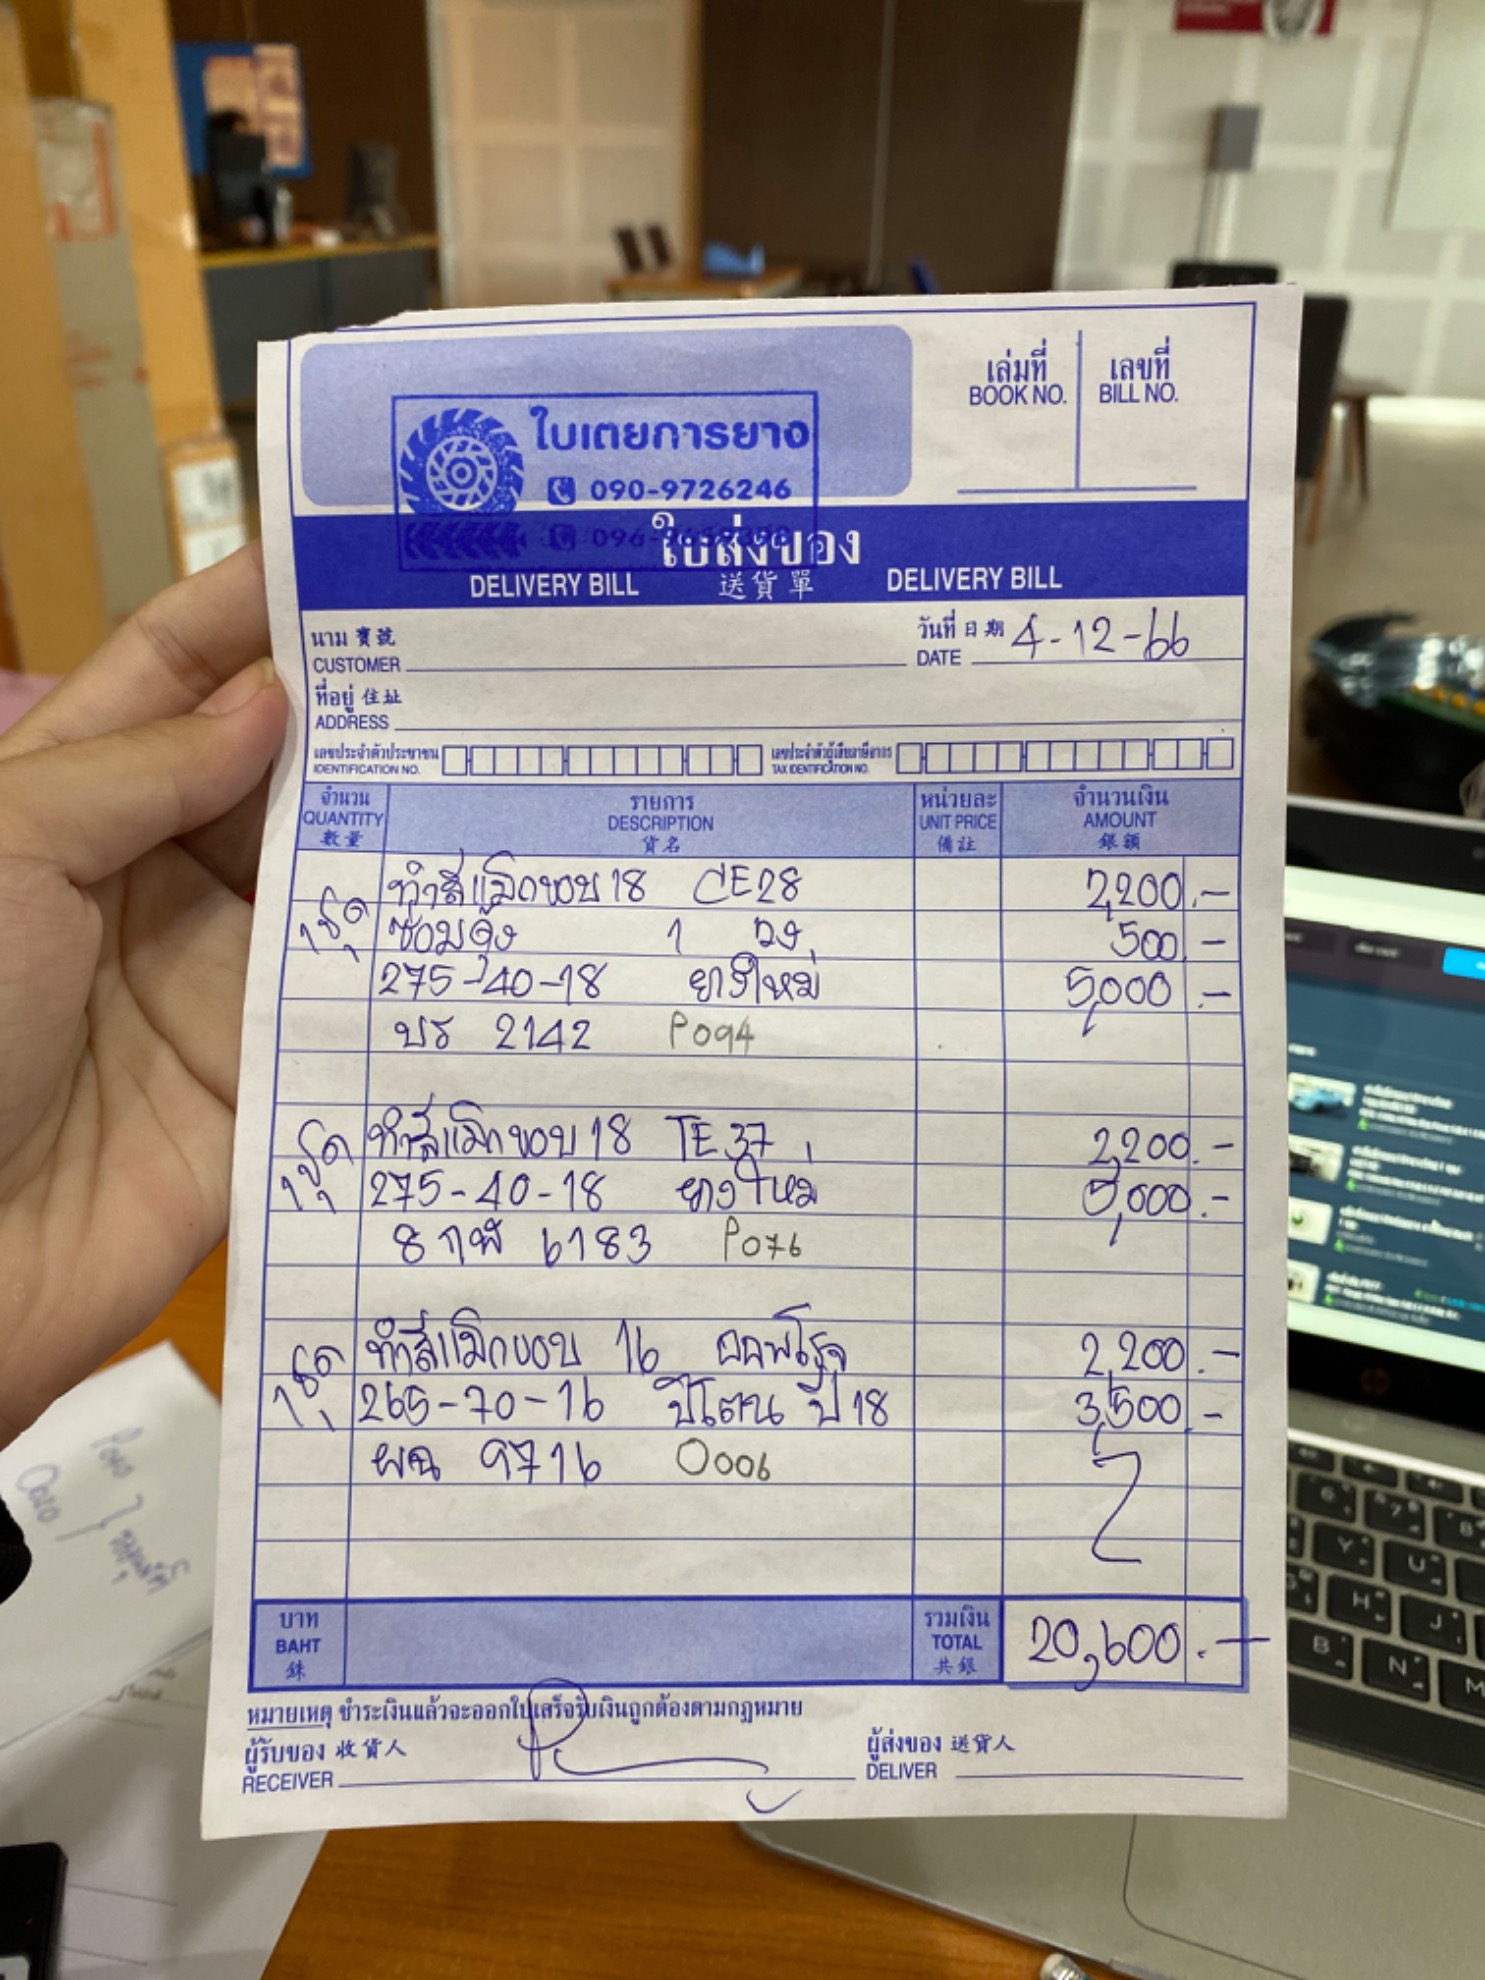 เล่มที่ เลขที่
BOOK NO. BILL NO.
ใบเตยการยาง
090-9726246
ใบส่งของ
DELIVERY BILL 送貨單 DELIVERY BILL
นาม 寶號 วันที่ 日期 4-12-66
CUSTOMER DATE
ที่อยู่ 住址
ADDRESS
เลขประจำตัวประชาชน เลขประจำตัวผู้เสียภาษีอากร
IDENTIFICATION NO. TAX IDENTIFICATION NO.
จำนวน รายการ หน่วยละ จำนวนเงิน
QUANTITY DESCRIPTION UNIT PRICE AMOUNT
數量 貨名 備註 銀額
1 ชุด ทำสีแม็กขอบ 18 CE28 2,200.-
ซ่อมดุ้ง 1 วง 500 -
275-40-18 ยางใหม่ 5,000.-
บร 2142 P094
1 ชุด ทำสีแม็กขอบ 18 TE37 2,200.-
275-40-18 ยางใหม่ 5,000.-
8 กพ 6183 P076
1 ชุด ทำสีแม็กขอบ 16 ออฟโรจ 2,200.-
265-70-16 ปี 18 3,500.-
ผฉ 9716 O006
บาท รวมเงิน
BAHT TOTAL 20,600.-
銖 共銀
หมายเหตุ ชำระเงินแล้วจะออกใบเสร็จรับเงินถูกต้องตามกฎหมาย
ผู้รับของ 收貨人 ผู้ส่งของ 送貨人
RECEIVER DELIVER